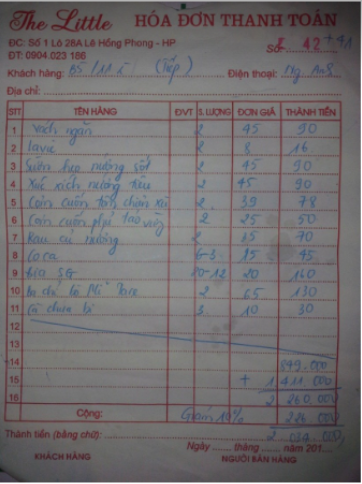 The Little HÓA ĐƠN THANH TOÁN
ĐC: Số 1 Lô 28A Lê Hồng Phong - HP
ĐT: 0904.023 186 Số: 42 + 41
Khách hàng: (Tiếp) Điện thoại: Ng. Anh
Địa chỉ:
STT TÊN HÀNG ĐVT S. LƯỢNG ĐƠN GIÁ THÀNH TIỀN
1 ngăn 2 45 90
2 lavie 2 8 16
3 Sườn heo nướng sốt 2 45 90
4 Xúc xích nướng 2 45 90
5 cuốn tôm chiên 2 39 78
6 cuốn phi 2 25 50
7 Rau củ nướng 2 35 70
8 Coca 6-3 15 45
9 Bia SG 20-12 20 160
10 bò Mĩ 2 65 130
11 Cà chua bi 3 10 30
12
13
14 849.000
15 + 1 411.000
16 2 260.000
Cộng: Giảm 10% 226.000
Thành tiền (bằng chữ): 2 034.000
Ngày tháng năm 201
KHÁCH HÀNG NGƯỜI BÁN HÀNG